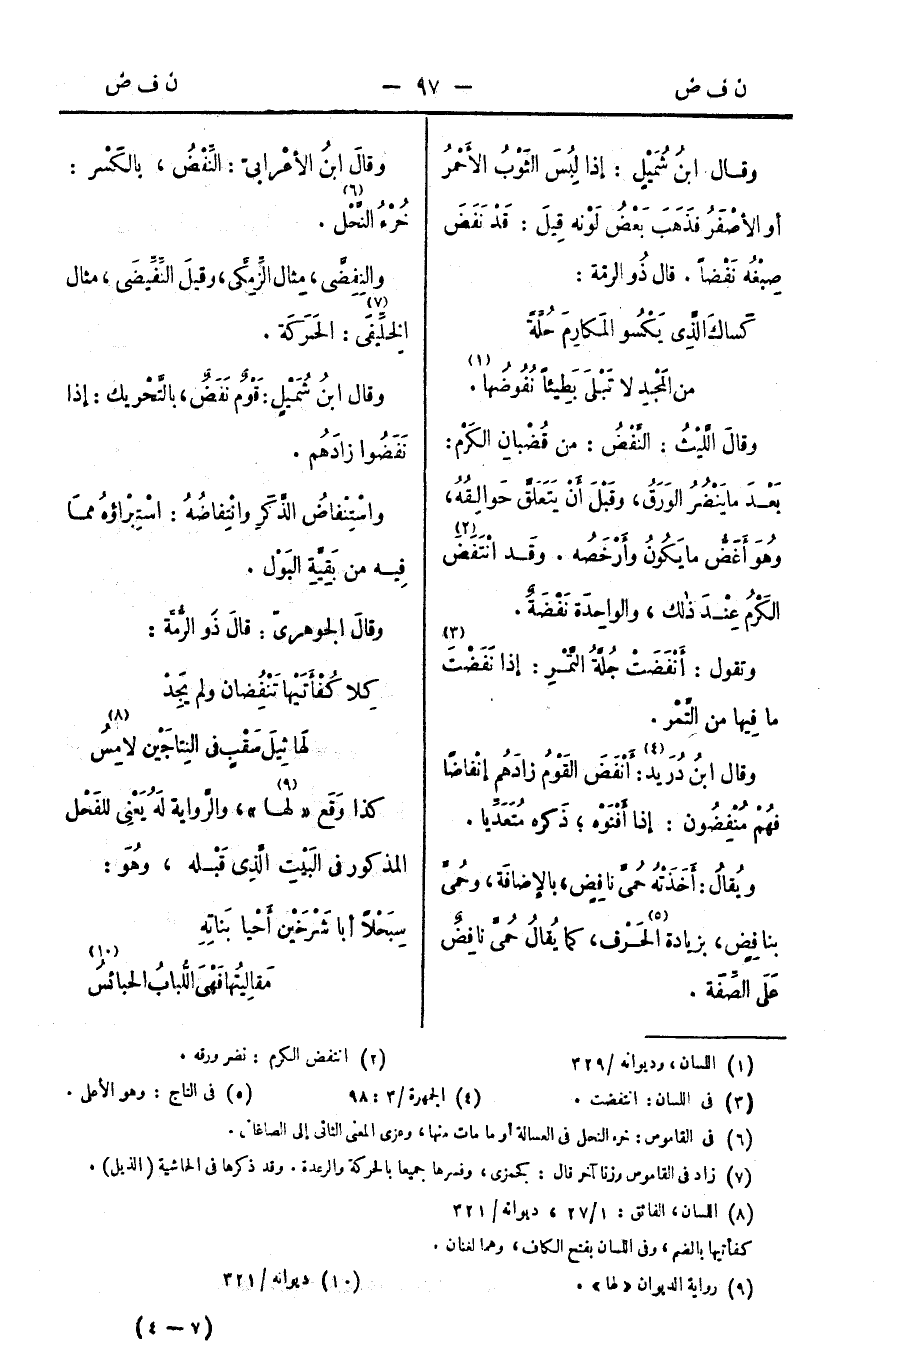 ن ف ض
— ٩٧ —
ن ف ض
وقـال ابنُ شُمَيْلٍ : إذا لُبِسَ الثَّوْبُ الأَحْمَرُ
أو الأصْفَرُ فذَهَبَ بَعْضُ لَوْنِه قِيلَ : قَدْ نَفَضَ
صِبْغُه نَفْضاً . قال ذُو الرمّة :
كَساكَ الَّذِى يَكْسُو المَكارِمَ حُلَّةً
من المَجْدِ لا تَبْلَى بَطِيئاً نُفُوضُها(١) .
وقالَ اللَّيْثُ : النَّفْضُ : من قُضْبانِ الكَرْم :
بَعْـدَ ما يَنْضُرُ الوَرَقُ ، وقَبْلَ أَنْ يَتَعَلَّقَ حَوالِقُهُ ،
وهُوَ أَغَضُّ ما يَكُونُ وأَرْخَصُه . وقَـد انْتَفَضَ(٢)
الكَرْمُ عِنْـدَ ذٰلك ، والواحِدَة نَفْضَةٌ .
وتقول : أَنْفَضَتْ(٣) جُلَّةُ التَّمْـرِ : إذا نَفَضْتَ
ما فِيها من التَّمْرِ .
وقال ابنُ دُرَيد(٤) : أَنْفَضَ القَوْمُ زادَهُم إنْفاضًا
فهُمْ مُنْفِضُون : إذا أَفْنَوْه ؛ ذَكره مُتَعَدِّيا .
ويُقالُ : أَخَذَتْهُ حُمَّى نافِضٍ ، بالإضافَة ، وحُمَّى
بنافِضٍ ، بزيادة الحَرْف(٥) ، كما يُقالُ حُمَّى نافِضٌ
عَلَى الصِّفَة .
وقالَ ابنُ الأعْرابىّ : النِّفْضُ ، بالكَسْر :
خُرْءُ النَّحْل(٦) .
والنِفِضَّى ، مِثال الزِّمِكَّى ، وقيلَ النِّفِّيضَى ، مثال
الخِلِّيفَى(٧) : الحَرَكَة .
وقال ابنُ شُمَيْلٍ : قَوْمٌ نَفَضٌ ، بالتَّحْريك : إذا
نَفَضُوا زادَهُم .
واسْتِنْفاضُ الذَّكَرِ وانْتِفاضُهُ : اسْتِبْراؤهُ ممـا
فِيـه من بَقِيَّةِ البَوْل .
وقالَ الجوهرىّ : قالَ ذُو الرُّمَّة :
كِلا كُفْأَتَيْها تَنْفُضان ولم يَجِدْ
لَها ثِيلَ سَقْبٍ فى النِتاجَيْن لامِسُ(٨)
كذا وَقَع « لها(٩) » ، والرِّواية لَهُ يَعْنِى للفَحْل
المذكور فى البَيْتِ الَّذِى قَبْـله ، وهُوَ :
سِبَحْلاً أبا شَرْخَيْنِ أَحْيا بَناتِهِ
مَقاليتُها فَهْىَ اللُّبابُ الحبائسُ(١٠)
(١) اللسان ، وديوانه /٣٢٩
(٢) انتفض الكرم : نضر ورقه .
(٣) فى اللسان : انتفضت .
(٤) الجمهرة/٣ : ٩٨
(٥) فى التاج : وهو الأعلى .
(٦) فى القاموس : خره النحل فى العسالة أو ما مات منها ، وعزى المعنى الثانى إلى الصاغانى .
(٧) زاد فى القاموس وزنا آخر قال : كجمزى ، وفسرها جميعا بالحركة والرعدة . وقد ذكرها فى الحاشية ( الذيل ) .
(٨) اللسان ، الفائق : ٢٧/١ ، ديوانه/ ٣٢١
كفأتيها بالضم ، وفى اللسان بفتح الكاف ، وهما لغتان .
(٩) رواية الديوان « لها » .
(١٠) ديوانه /٣٢١
(٧ — ٤)